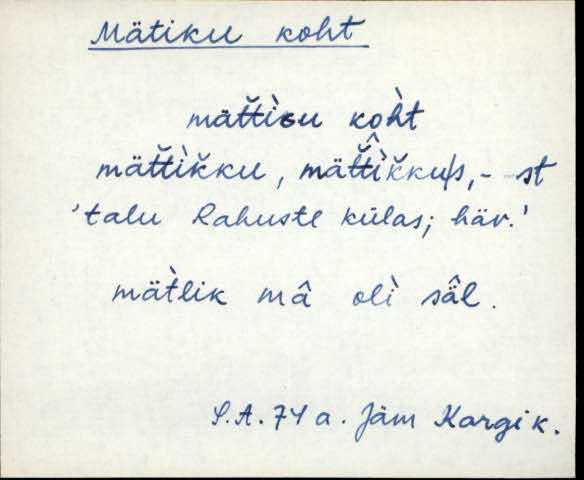 Mätiku koht
mät̆t̆ìɢu kòht
mät̆t̆ìk̆ku, mät̆t̆ìk̆kus, - st
'talu Rahuste külas; häv.'
mät̀lik mâ olì sä̂l.
S.A. 74 a. Jäm Kargik.